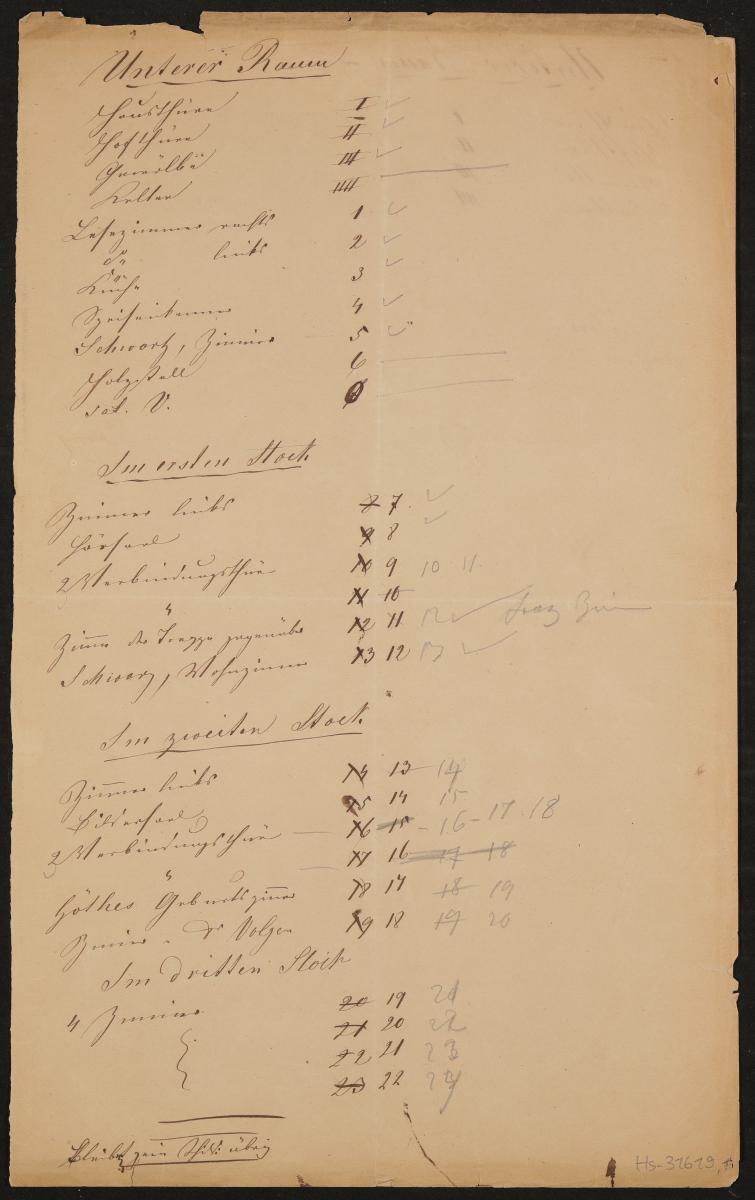 Unterer Raum
Hausthüre I
Hofthüre II
Gewölbe III
Kelter IIII
Lesezimmer rechts 1
do links 2
Küche 3
Speisekammer 4
Schwartz, Zimmer 5
Holzstall 6
V. 0
Im ersten Stock
Zimmer links 8 7
Hörsaal 9 8
2 Verbindungsthür 10 9 10 11
" 11 10
Zimer der Treppe gegenüber 12 11 12
Schwarz, Wohnzimmer 13 12 13
Im zweiten Stock
Zimmer links 14 13 14
Bildersaal 15 14 15
2 Verbindungsthür 16 15 - 16 - 17 . 18
" 17 16 17 18
Göthes Geburtszimer 18 17 18 19
Zimer " Dr Volger 19 18 19 20
Im dritten Stock
4 Zimmer 20 19 21
21 20 22
22 21 23
23 22 24
Bleibt ein Schild übrig
Hs-31619,